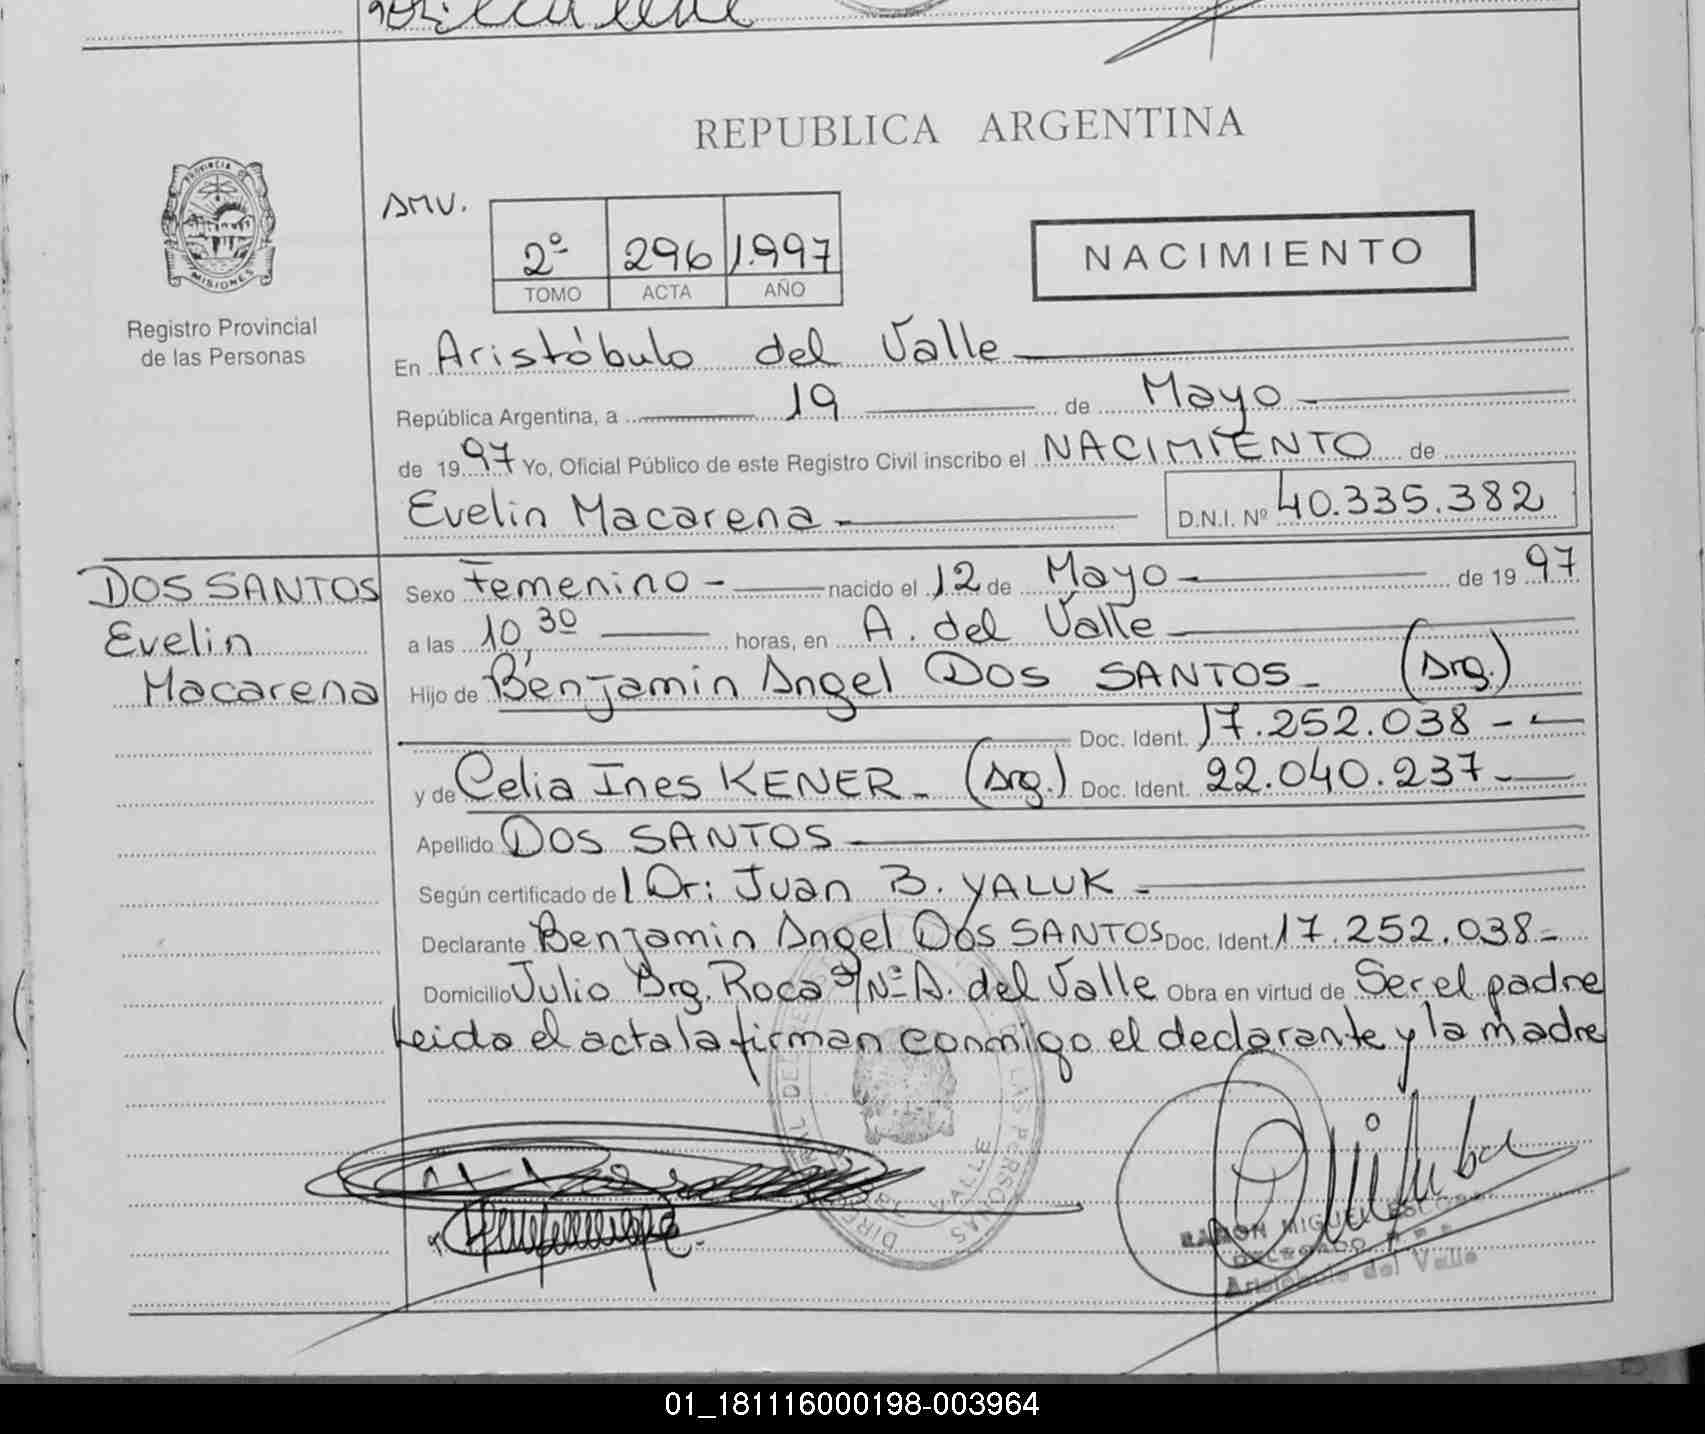 REPUBLICA ARGENTINA
PROVINCIA DE
MISIONES
Registro Provincial
de las Personas
AMV.
2º 296 1.997
TOMO ACTA AÑO
NACIMIENTO
En Aristóbulo del Valle
República Argentina, a 19 de Mayo
de 1997 Yo, Oficial Público de este Registro Civil inscribo el NACIMIENTO de
Evelin Macarena D.N.I. Nº 40.335.382
DOS SANTOS
Evelin
Macarena
Sexo Femenino - nacido el 12 de Mayo de 1997
a las 10,30 horas, en A. del Valle
Hijo de Benjamin Angel DOS SANTOS - (Arg.)
Doc. Ident. 17.252.038 -
y de Celia Ines KENER - (Arg.) Doc. Ident. 22.040.237 -
Apellido DOS SANTOS
Según certificado de l Dr: Juan B. YALUK -
Declarante Benjamin Angel DOS SANTOS Doc. Ident. 17.252.038 -
Domicilio Julio Arg. Roca S/Nº A. del Valle Obra en virtud de Ser el padre
Leida el acta la firman conmigo el declarante y la madre
RAMON MIGUEL
DELEGADO
Aristóbulo del Valle
01_181116000198-003964